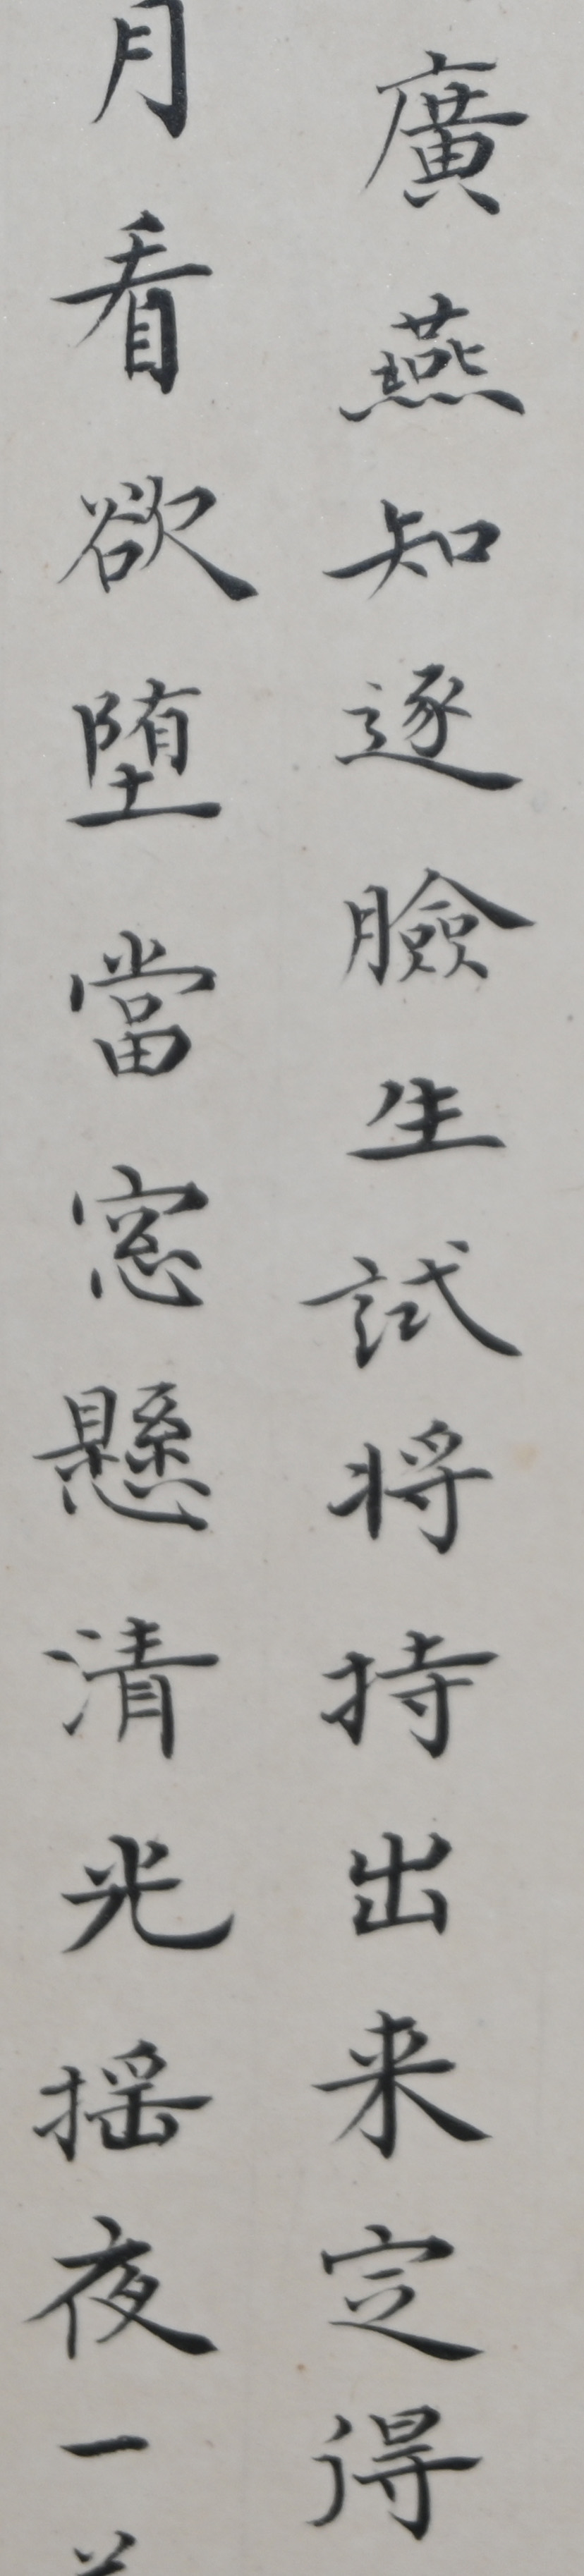 廣燕知逐臉生試將持出来定得
月看欲堕當窓懸清光揺夜一